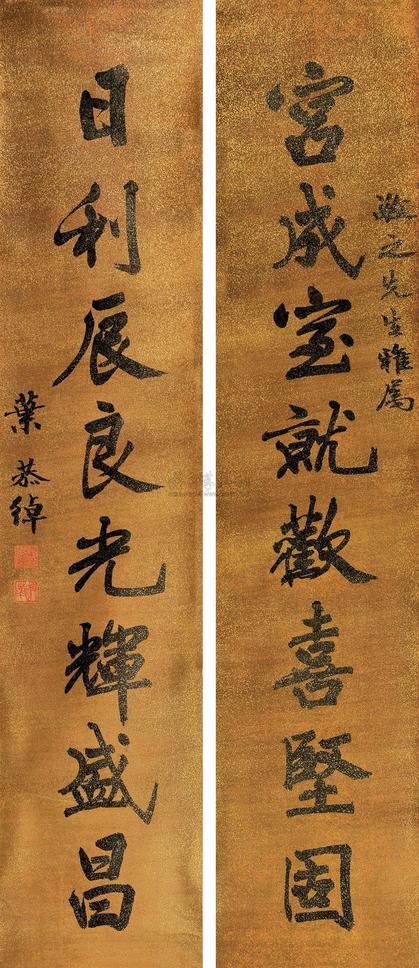 宮成室就歡喜堅固
之先生雅屬
日利辰良光輝盛昌
葉恭綽